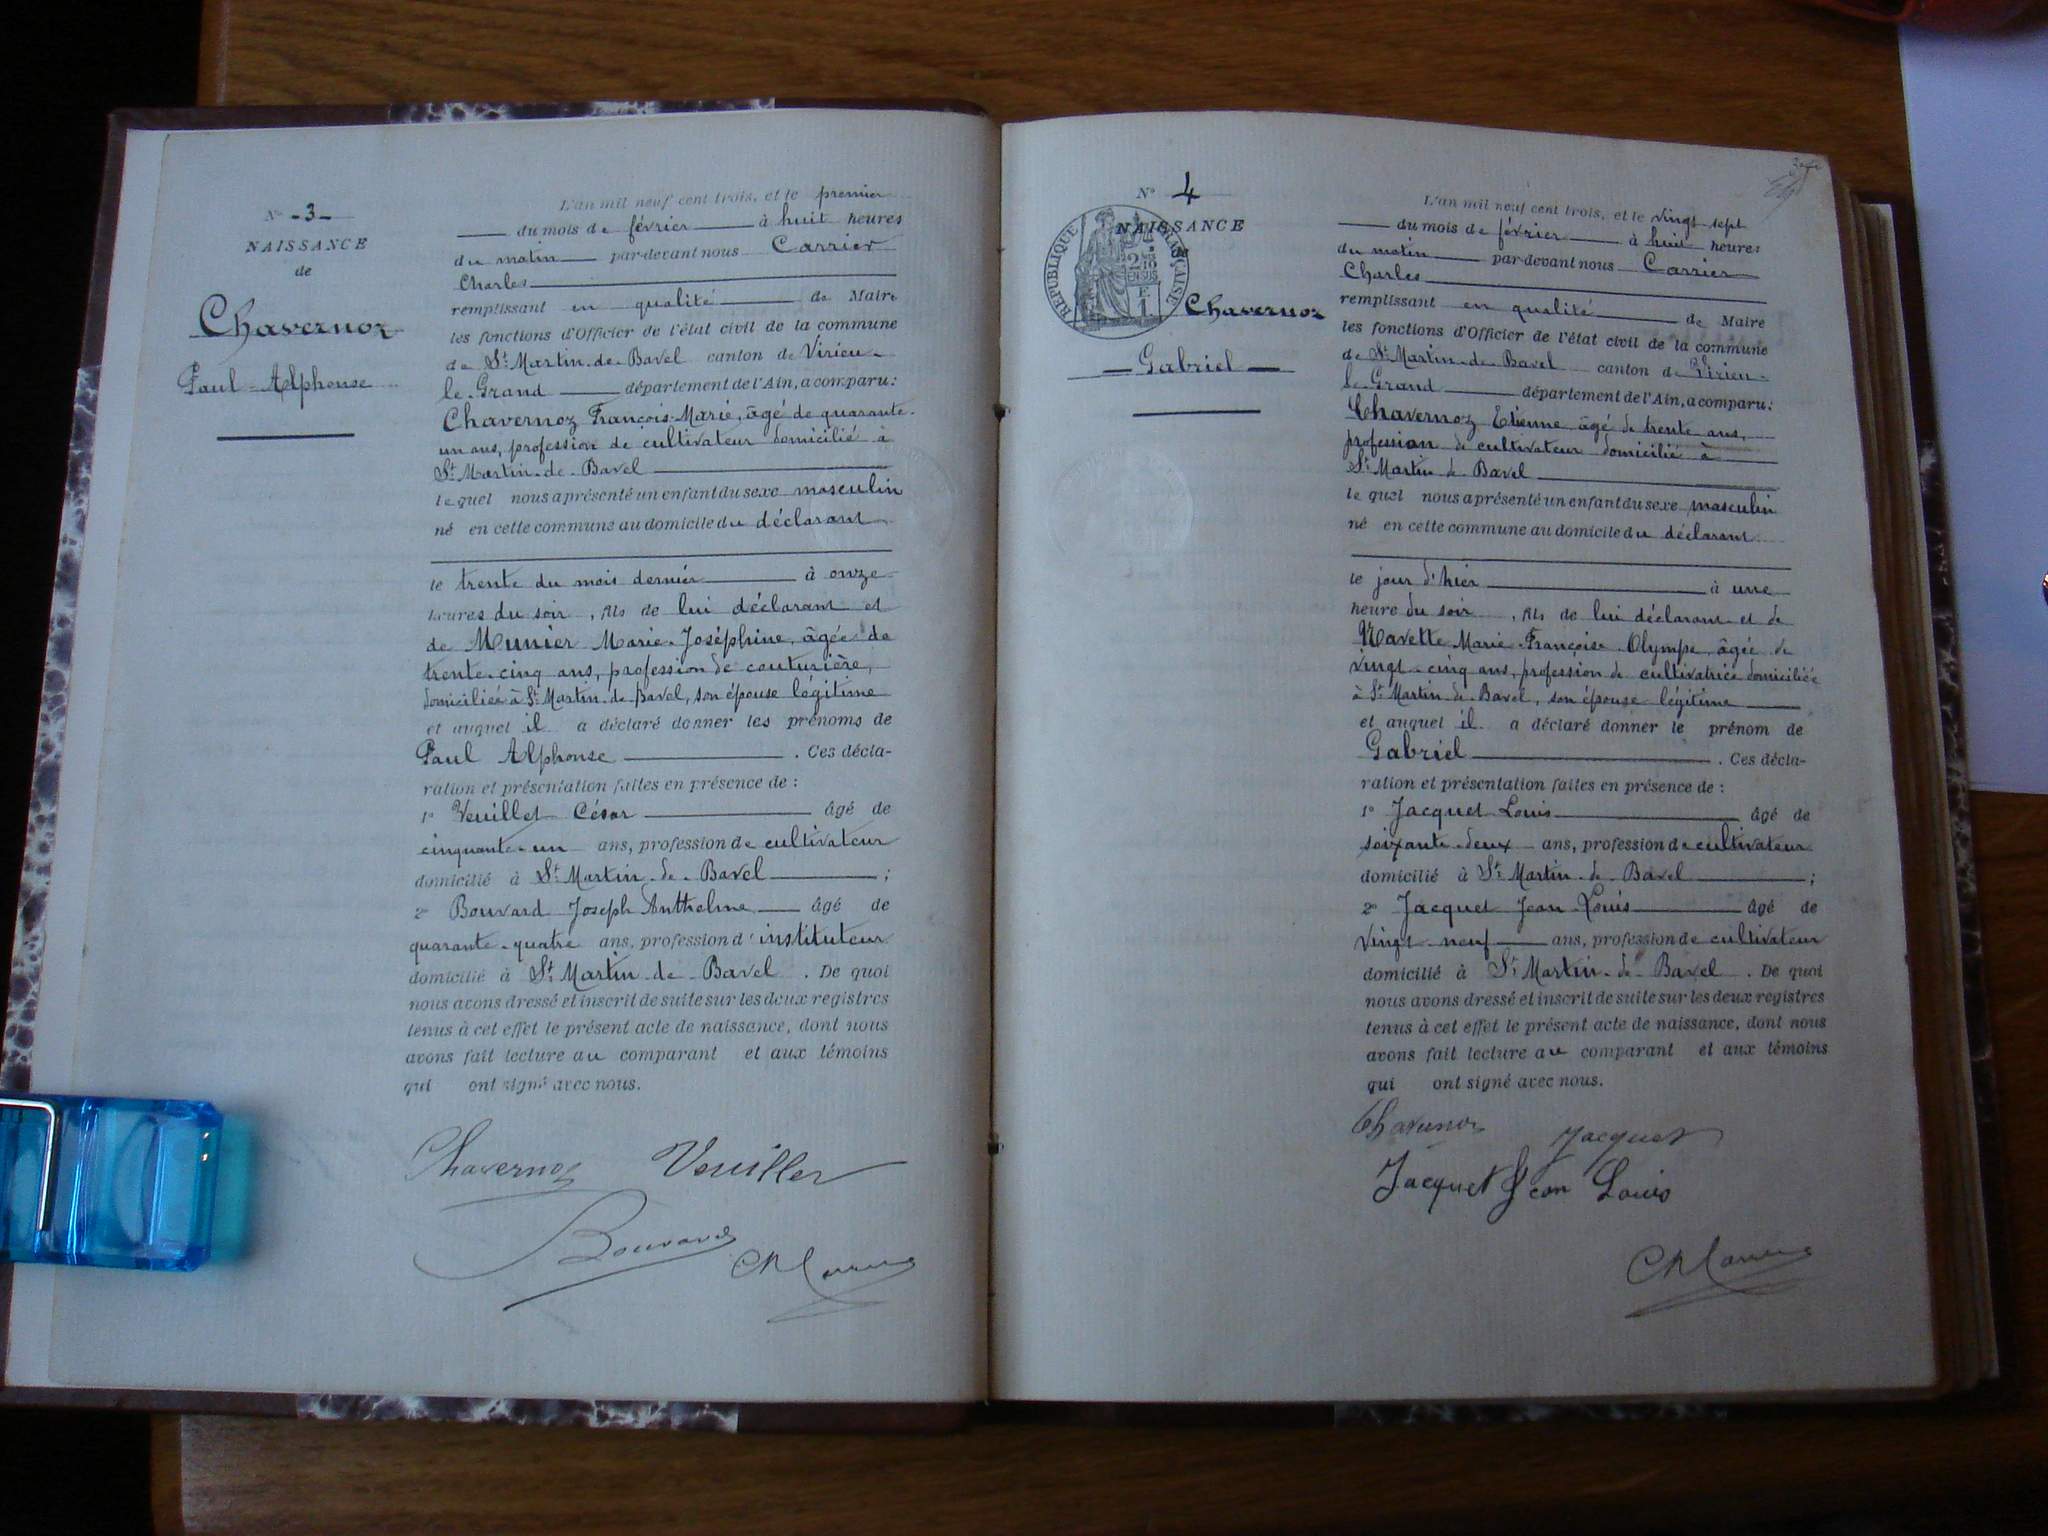 N° -3-
NAISSANCE
de
Chavernoz
Paul-Alphonse
L'an mil neuf cent trois, et le premier
du mois de février à huit heures
du matin par-devant nous Carrier
Charles
remplissant en qualité de Maire
les fonctions d'Officier de l'état civil de la commune
de St Martin-de-Bavel canton de Virieu-
le-Grand département de l'Ain, a comparu:
Chavernoz François-Marie, âgé de quarante-
un ans, profession de cultivateur domicilié à
St Martin-de-Bavel
lequel nous a présenté un enfant du sexe masculin
né en cette commune au domicile du déclarant
le trente du mois dernier à onze
heures du soir, fils de lui déclarant et
de Munier Marie-Joséphine, âgée de
trente-cinq ans, profession de couturière,
domiciliée à St Martin-de-Bavel, son épouse légitime
et auquel il a déclaré donner les prénoms de
Paul Alphonse. Ces décla-
ration et présentation faites en présence de :
1° Veuillet César âgé de
cinquante-un ans, profession de cultivateur
domicilié à St Martin-de-Bavel ;
2° Bouvard Joseph Anthelme âgé de
quarante-quatre ans, profession d'instituteur
domicilié à St Martin-de-Bavel. De quoi
nous avons dressé et inscrit de suite sur les deux registres
tenus à cet effet le présent acte de naissance, dont nous
avons fait lecture au comparant et aux témoins
qui ont signé avec nous.
Chavernoz Veuillet
Bouvard
N° 4
NAISSANCE
de
RÉPUBLIQUE FRANÇAISE
Chavernoz
Gabriel
L'an mil neuf cent trois, et le vingt-sept
du mois de février à huit heures
du matin par-devant nous Carrier
Charles
remplissant en qualité de Maire
les fonctions d'Officier de l'état civil de la commune
de St Martin-de-Bavel canton de Virieu-
le-Grand département de l'Ain, a comparu:
Chavernoz Etienne, âgé de trente ans,
profession de cultivateur domicilié à
St Martin-de-Bavel
lequel nous a présenté un enfant du sexe masculin
né en cette commune au domicile du déclarant
le jour d'hier à une
heure du soir, fils de lui déclarant et de
Navette Marie-Françoise-Olympe, âgée de
vingt-cinq ans, profession de cultivatrice domiciliée
à St Martin-de-Bavel, son épouse légitime
et auquel il a déclaré donner le prénom de
Gabriel. Ces décla-
ration et présentation faites en présence de :
1° Jacquet Louis âgé de
soixante-deux ans, profession de cultivateur
domicilié à St Martin-de-Bavel ;
2° Jacquet Jean-Louis âgé de
vingt-neuf ans, profession de cultivateur
domicilié à St Martin-de-Bavel. De quoi
nous avons dressé et inscrit de suite sur les deux registres
tenus à cet effet le présent acte de naissance, dont nous
avons fait lecture au comparant et aux témoins
qui ont signé avec nous.
Chavernoz Jacquet
Jacquet Jean Louis